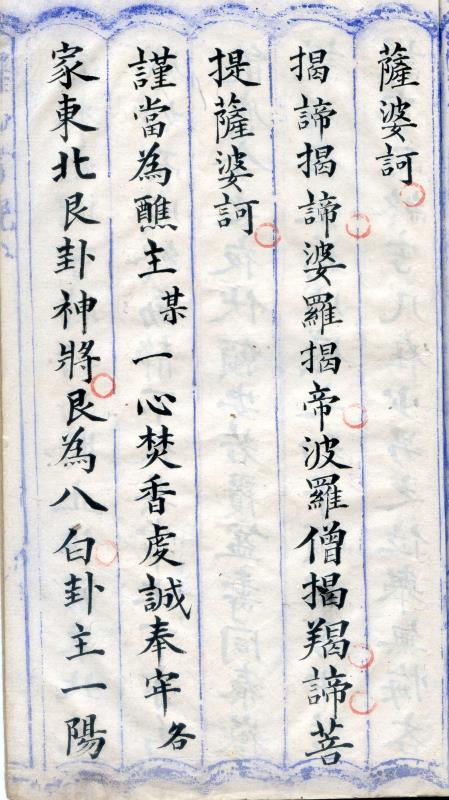 薩婆訶
揭諦揭諦婆羅揭帝波羅僧揭羯諦菩
提薩婆訶
謹當為醮主某一心焚香虔誠奉牢各
家東北艮卦神將艮為八白卦主一陽